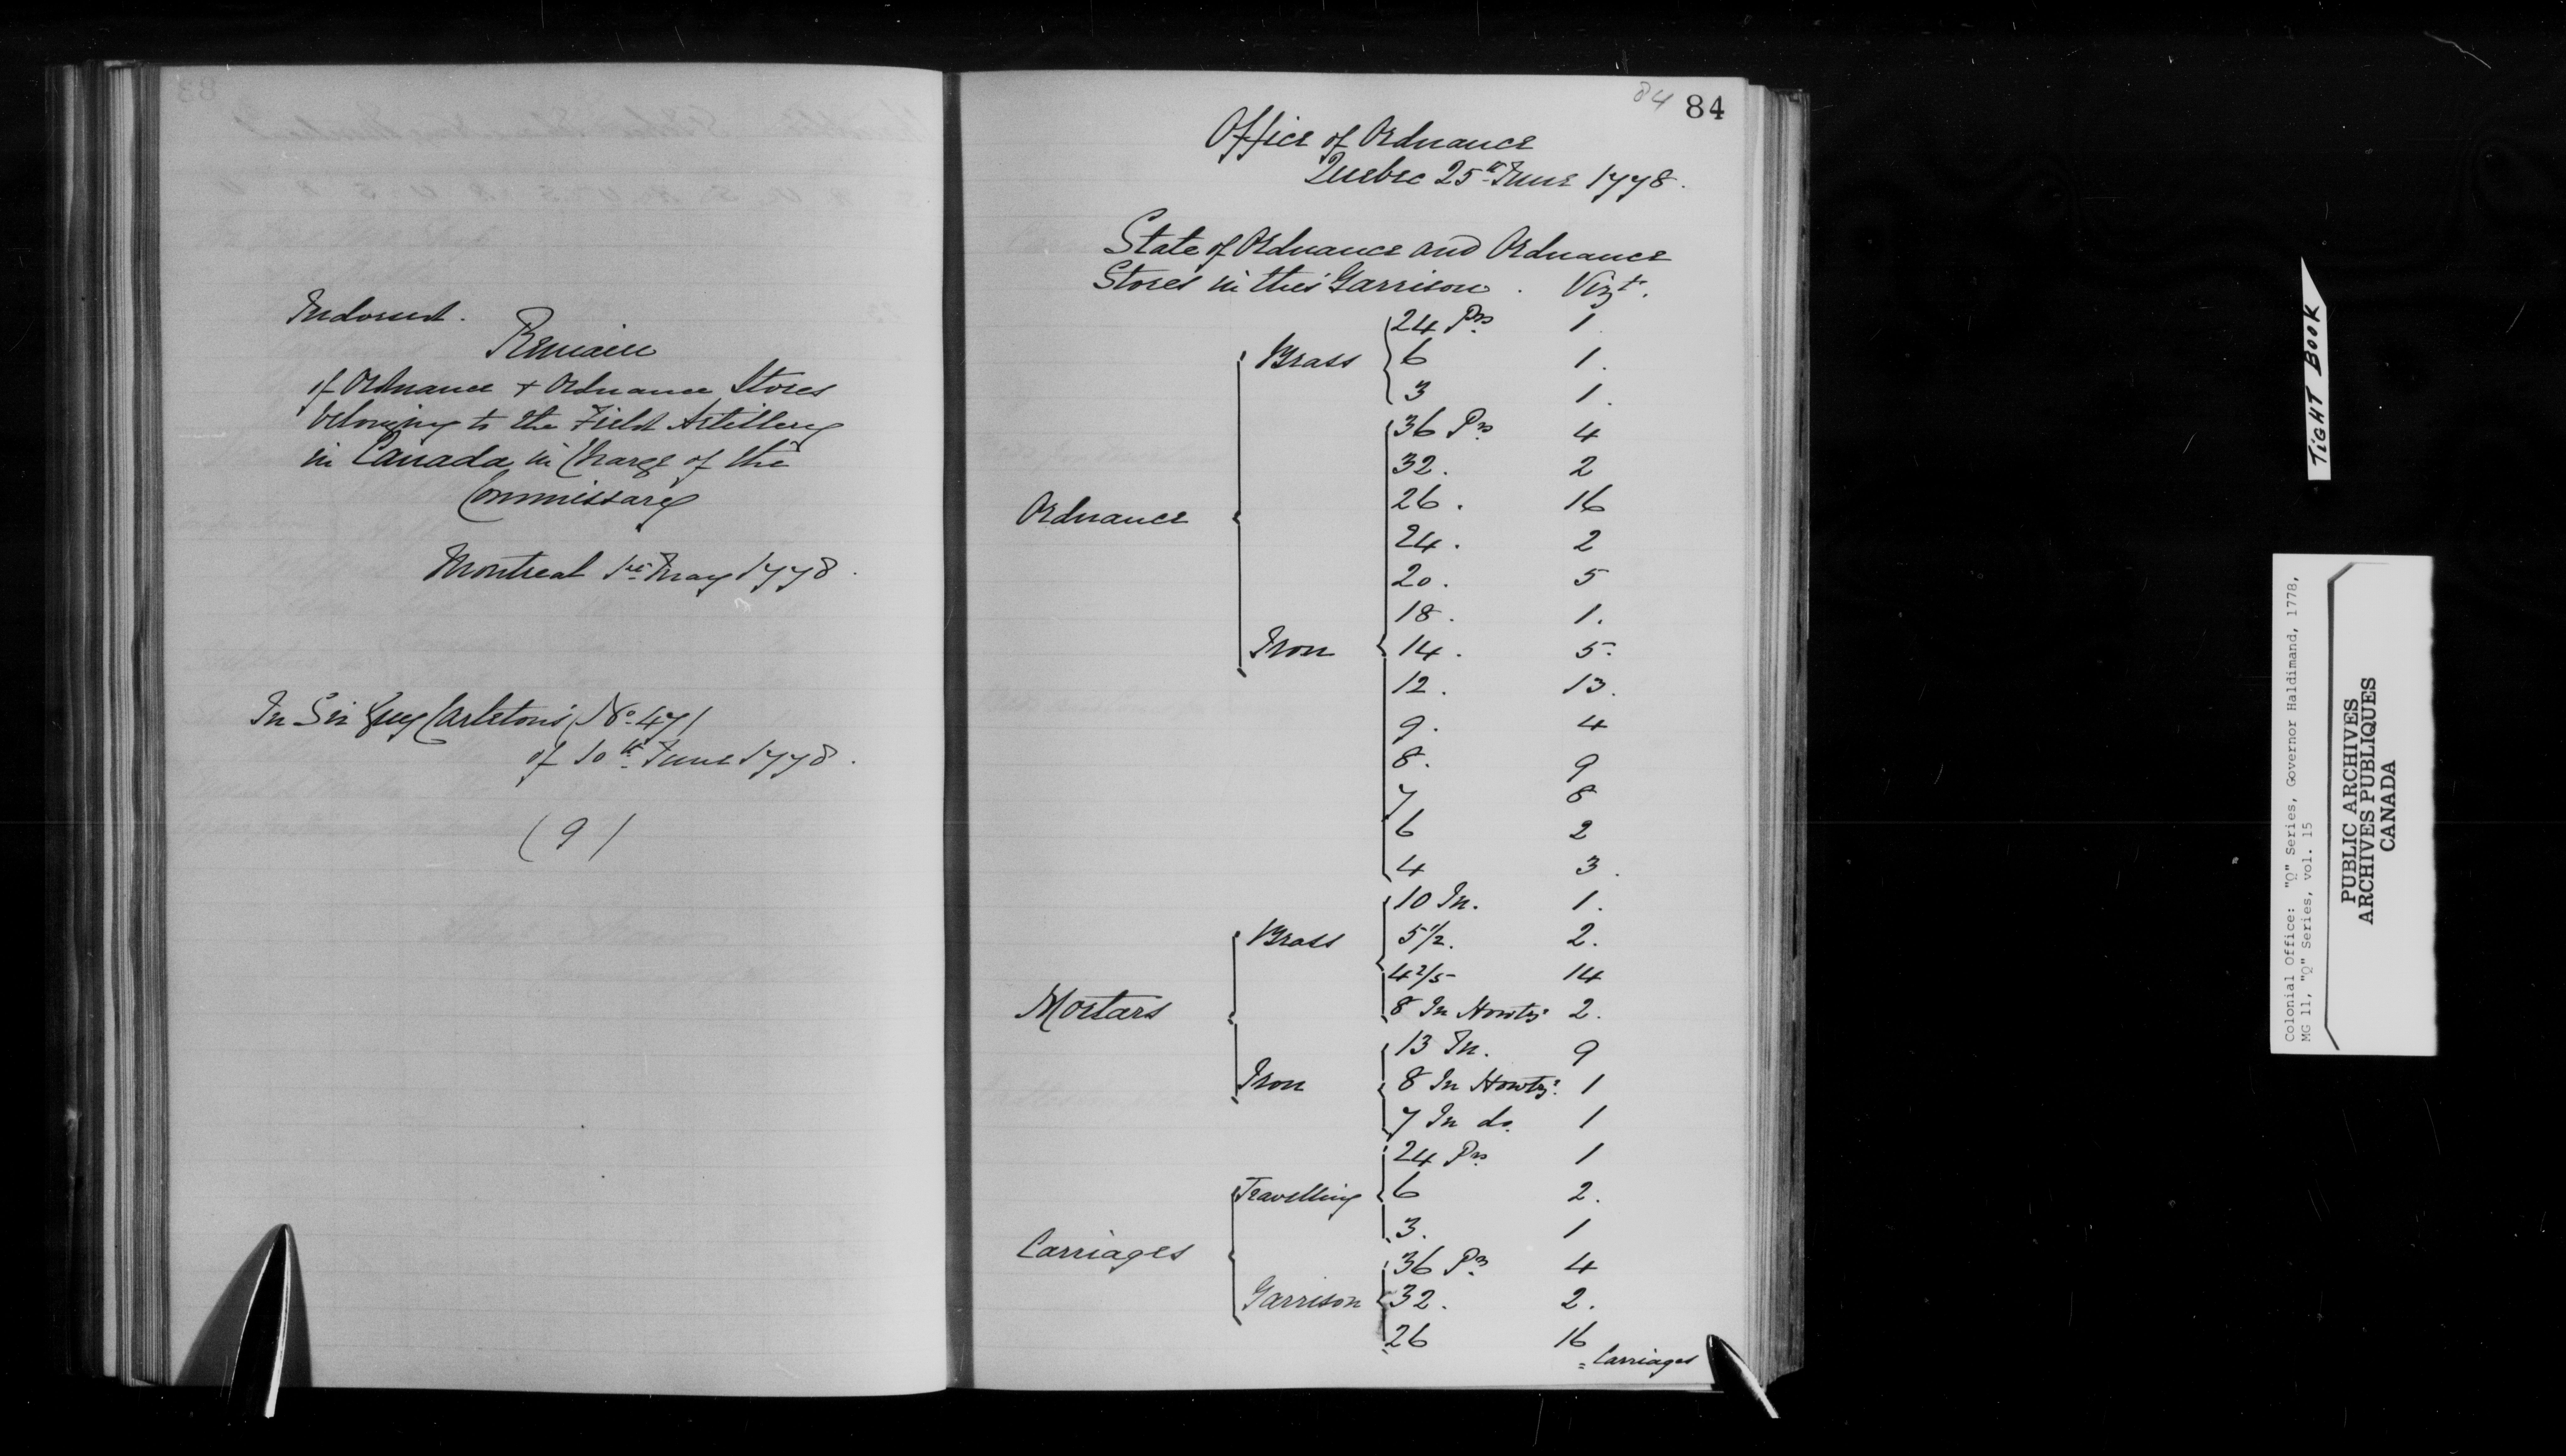 Indorsed.
Remain
of Ordnance + Ordnance Stores
belonging to the Field Artillery
in Canada in Charge of the
Commissary
Montreal 1st May 1778.
In Sir Guy Carleton's (No. 47)
of 10th June 1778.
(9)
84 84
Office of Ordnance
Quebec 25th June 1778.
State of Ordnance and Ordnance
Stores in this Garrison. Vizt.
24 Prs 1.
Brass 6 1.
3 1.
36 Prs 4
32. 2
26. 16
Ordnance 24. 2
20. 5
18. 1.
Iron 14. 5.
12. 13.
9. 4
8. 9
7 8
6 2
4 3.
10 In. 1.
Brass 5 1/2. 2.
4 2/5 14
Mortars 8 In Howtzs 2.
13 In. 9
Iron 8 In Howtzr. 1
7 In do. 1
24 Prs 1
Travelling 6 2.
3. 1
Carriages 36 Prs 4
Garrison 32. 2.
26 16
= Carriages
TIGHT BOOK
Colonial Office: "Q" Series, Governor Haldimand, 1778,
MG 11, "Q" Series, vol. 15
PUBLIC ARCHIVES
ARCHIVES PUBLIQUES
CANADA